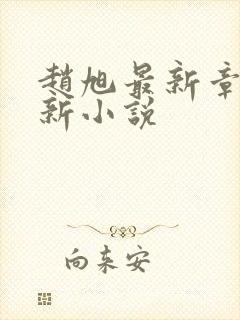 趙旭最新章
新小說
向來安